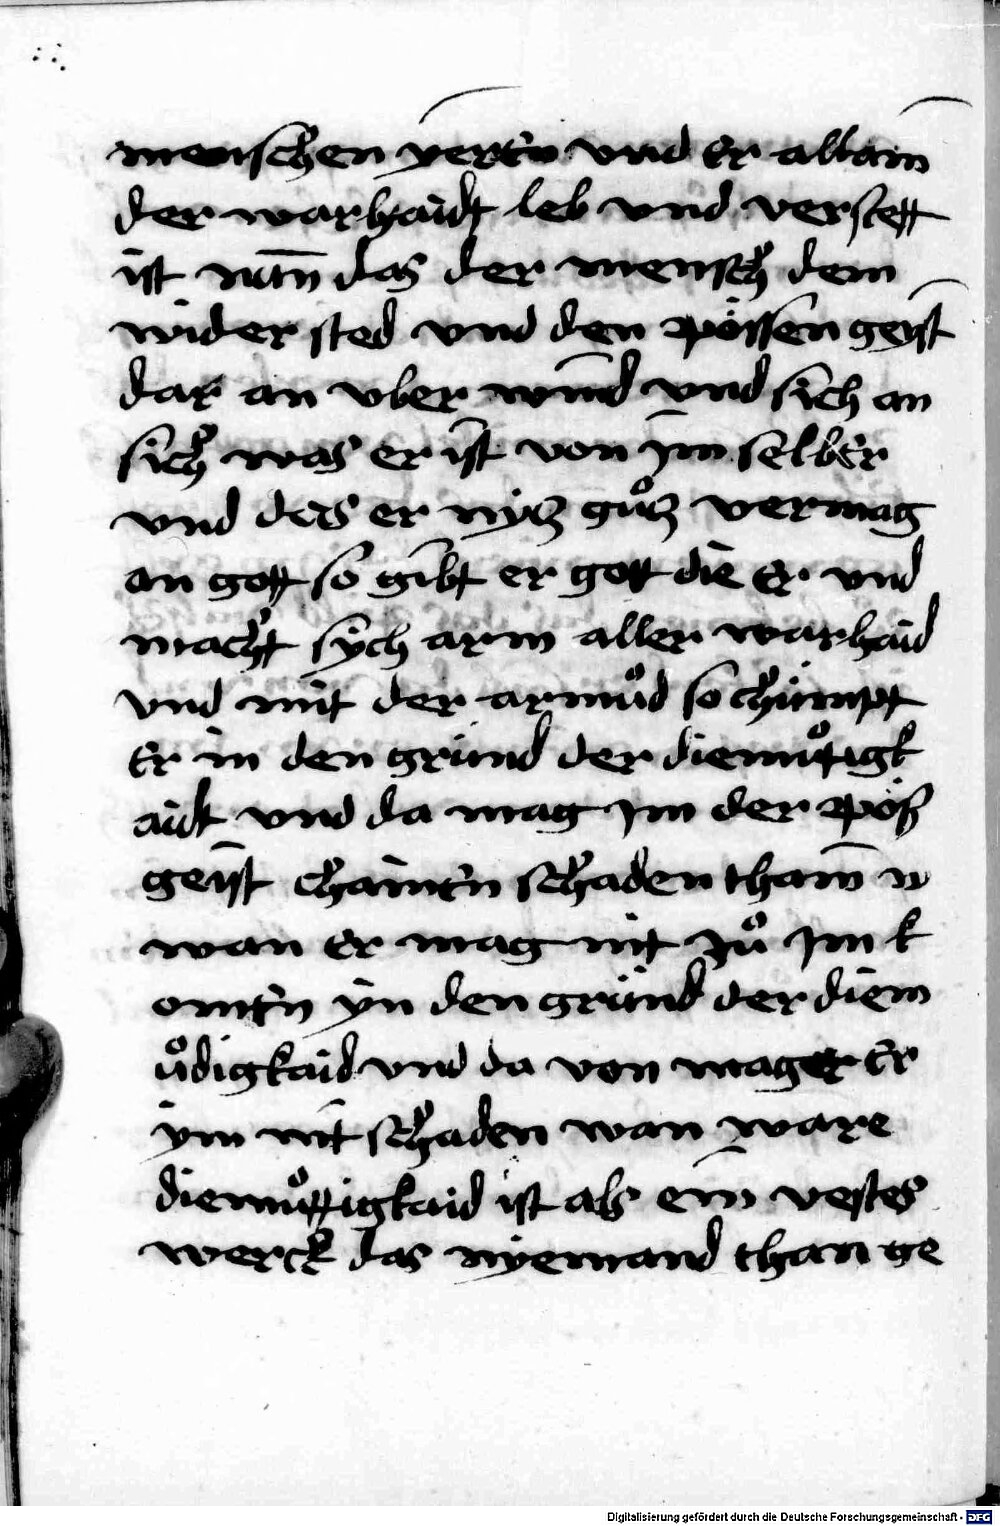 menschen und Er allain
der warhaidt leb und verstett
ist das der mensch dem
wider sted vnd den pössen geist
dar an vber wind vnd sich an
sich was er ist von im selber
vnd das er nÿtz guͦtz vermag
an gott so gibt er gott die Er vnd
macht sÿch arm aller warhaid
vnd mit der armuͦd so chümpt
Er in den gründ der diemuͦtigk
aidt vnd da mag Im der pöß
geist chainen schaden than
wan Er mag nit Zuͦ Im k
omen ÿn den gründ der diem
uͦdigkaid vnd da von mag Er
ÿm nit schaden wan ware
diemuͦttigkaid ist als ein vestes
werck das nÿemand than ge
Digitalisierung gefördert durch die Deutsche Forschungsgemeinschaft - DFG